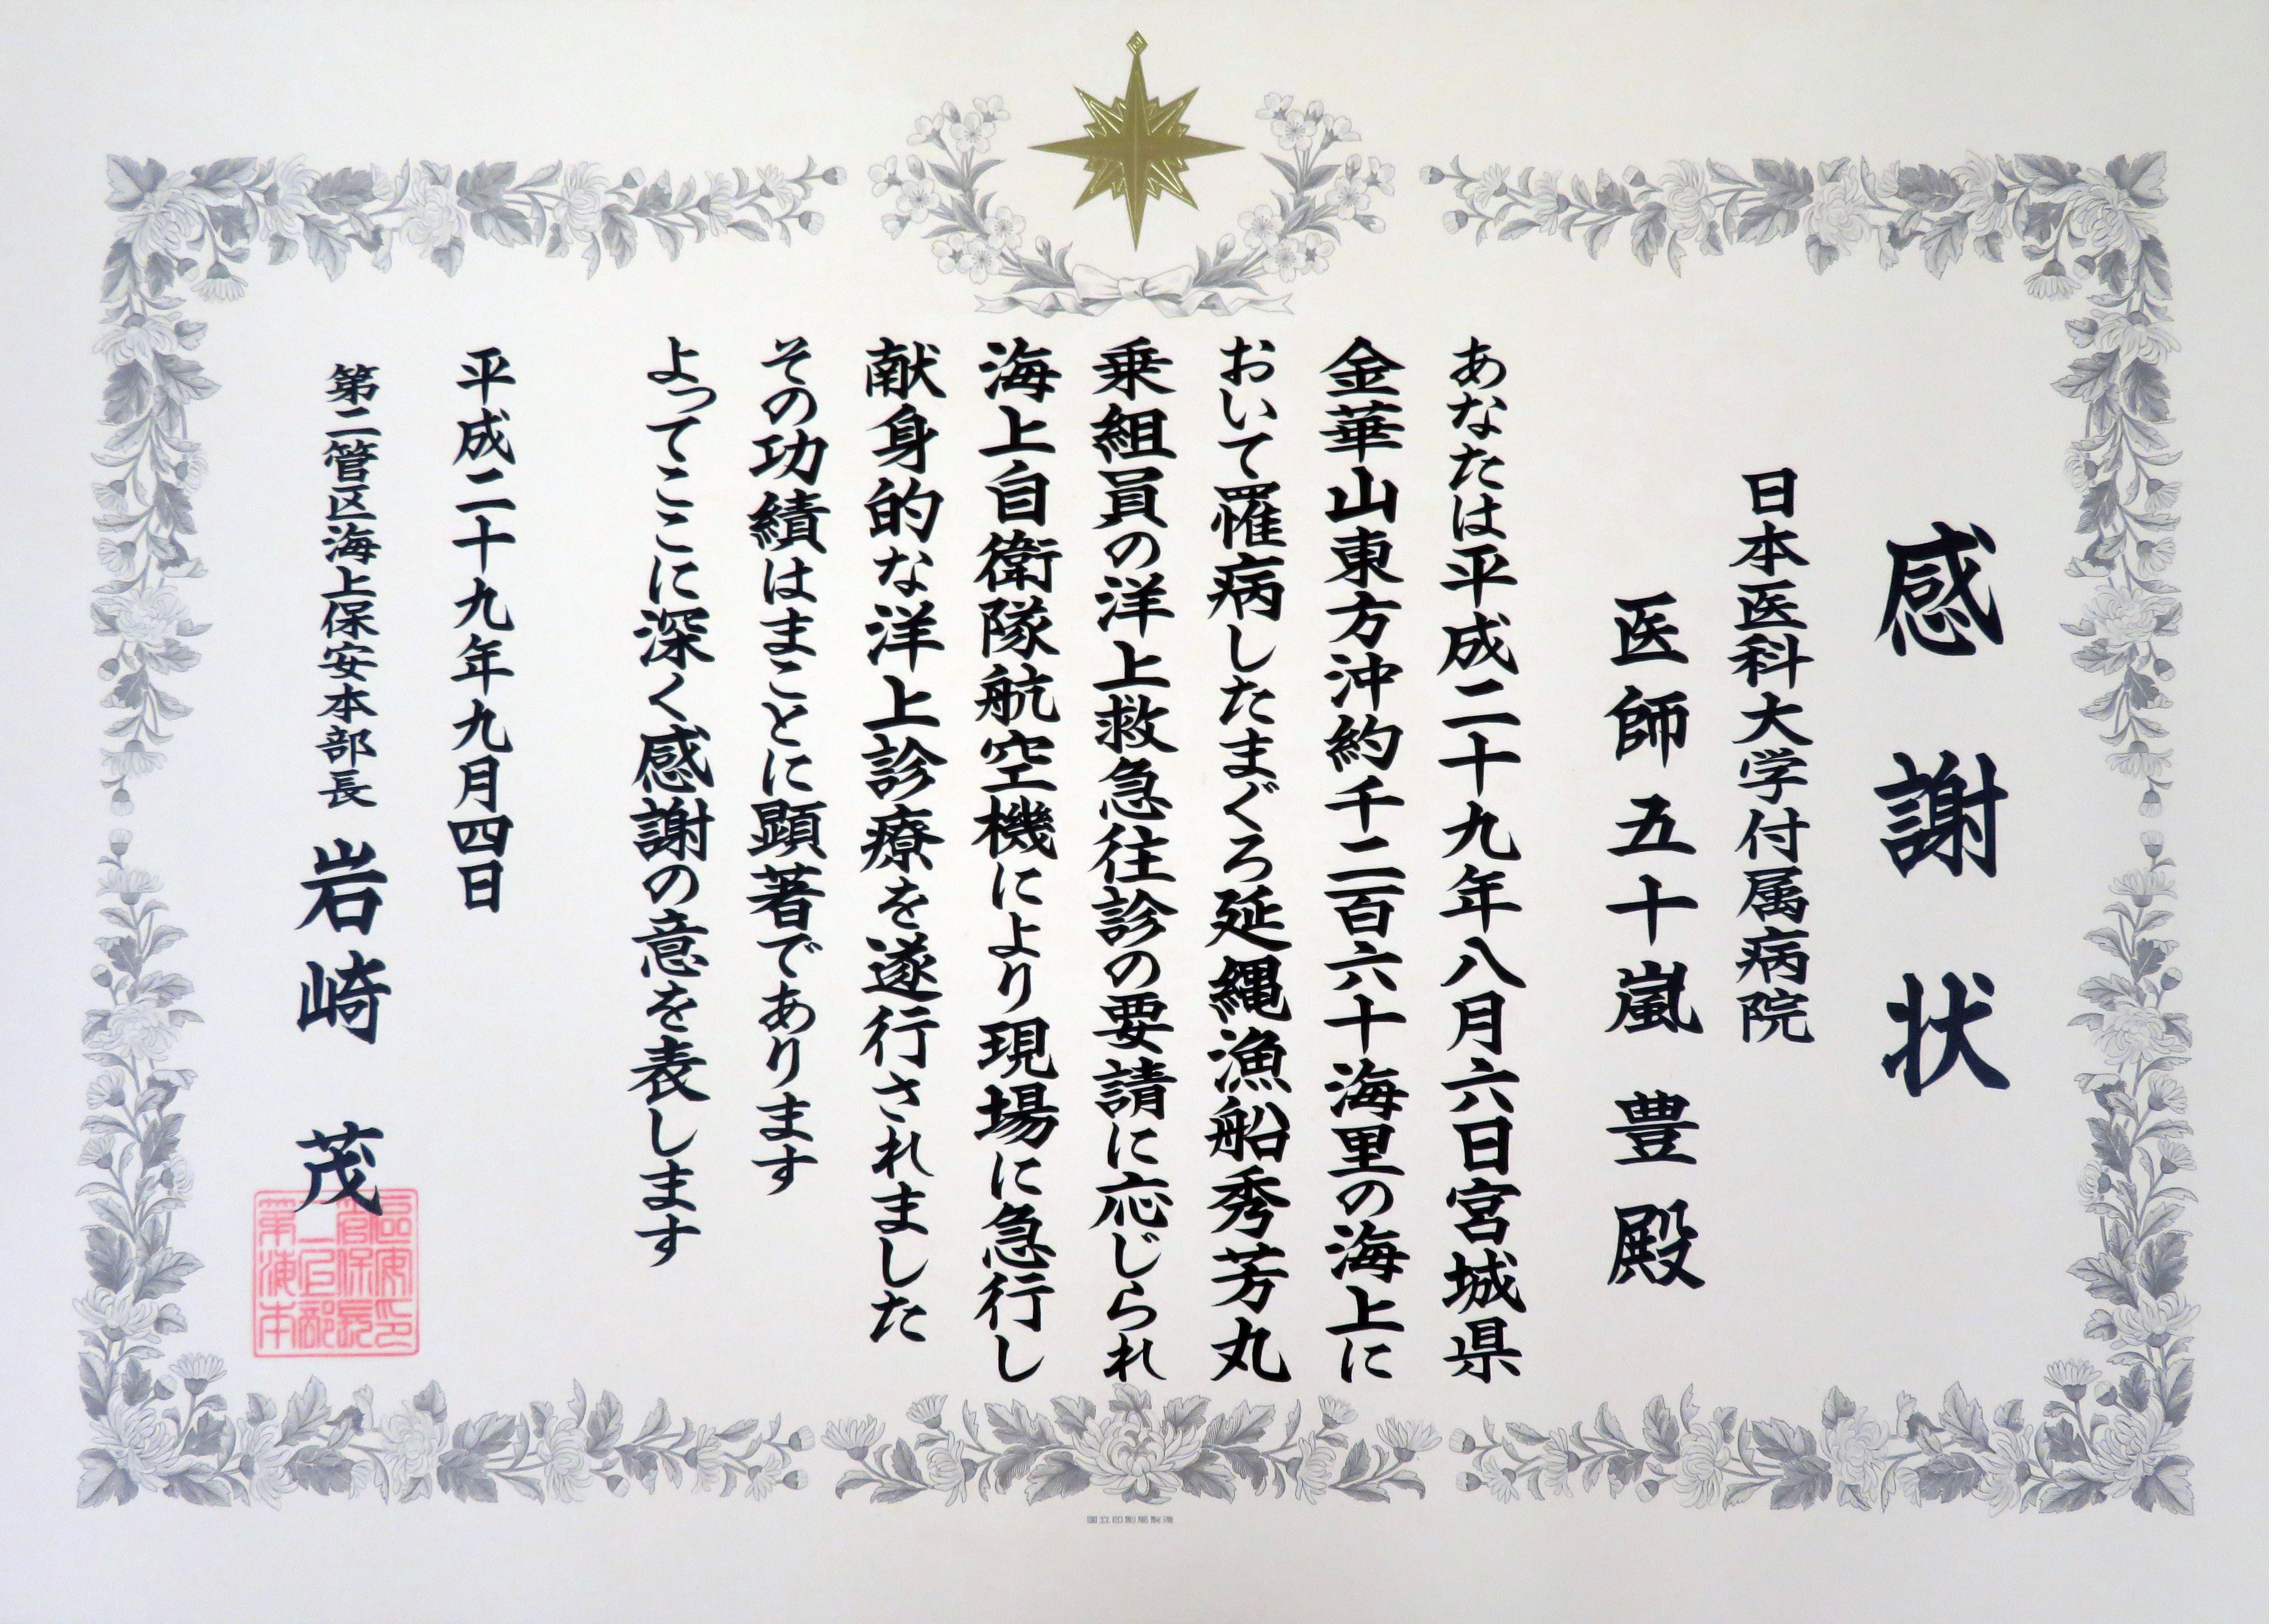 感謝状
日本医科大学付属病院
医師五十嵐 豊 殿
あなたは平成二十九年八月六日宮城県
金華山東方沖約千二百六十海里の海上に
おいて罹病したまぐろ延縄漁船秀芳丸
乗組員の洋上救急往診の要請に応じられ
海上自衛隊航空機により現場に急行し
献身的な洋上診療を遂行されました
その功績はまことに顕著であります
よってここに深く感謝の意を表します
平成二十九年九月四日
第二管区海上保安本部長 岩崎 茂
国立印刷局製造